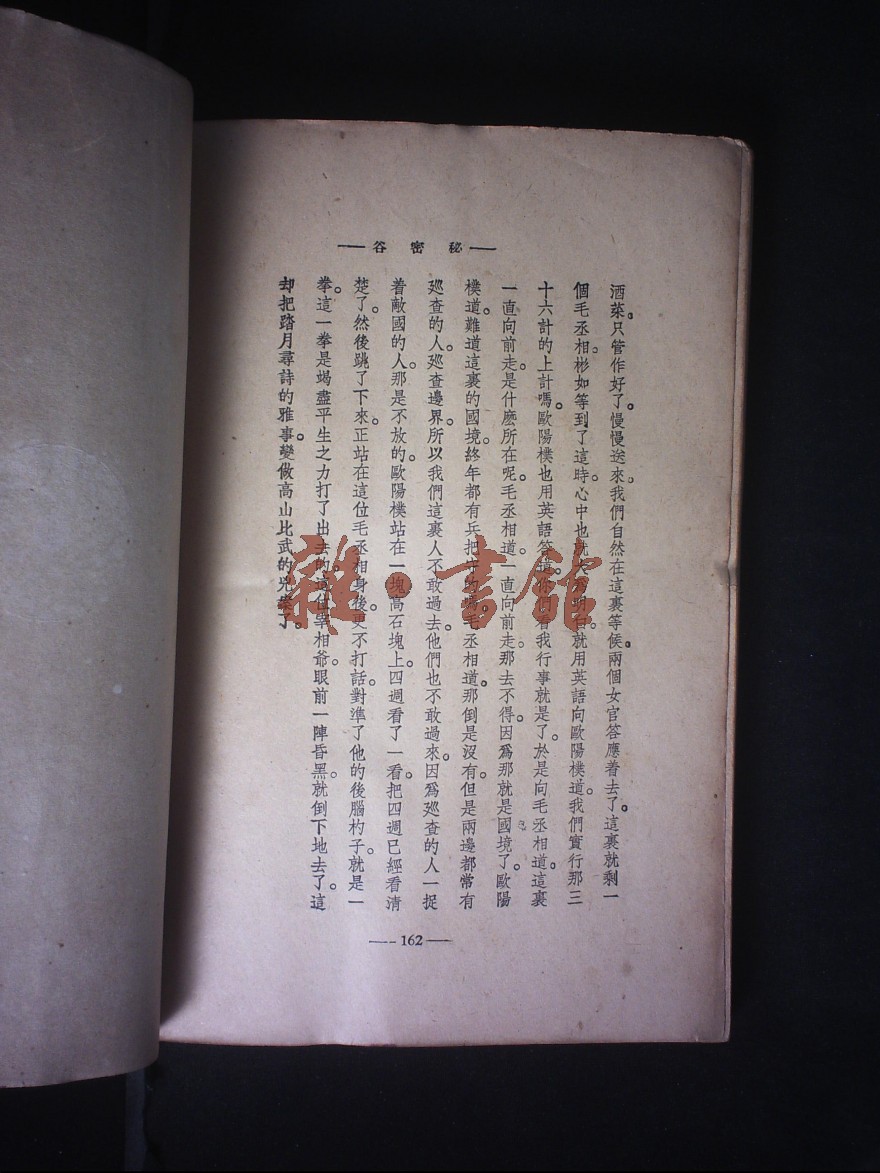 秘密谷
酒菜。只管作好了。慢慢送來。我們自然在這裏等候。兩個女官答應着去了。這裏就剩一
個毛丞相。彬如等到了這時。心中也就大爲明白。就用英語向歐陽樸道。我們實行那三
十六計的上計嗎。歐陽樸也用英語答道。你且看我行事就是了。於是向毛丞相道。這裏
一直向前走。是什麽所在呢。毛丞相道。一直向前走。那去不得。因爲那就是國境了。歐陽
樸道。難道這裏的國境。終年都有兵把守的嗎。毛丞相道。那倒是沒有。但是兩邊都常有
廵查的人。廵查邊界。所以我們這裏人不敢過去。他們也不敢過來。因爲廵查的人一捉
着敵國的人。那是不放的。歐陽樸站在一塊高石塊上。四週看了一看。把四週已經看清
楚了。然後跳了下來。正站在這位毛丞相身後。更不打話。對準了他的後腦杓子。就是一
拳。這一拳是竭盡平生之力打了出去的。這位宰相爺。眼前一陣昏黑。就倒下地去了。這
却把踏月尋詩的雅事。變做高山比武的兇案了。
162
雜·書館